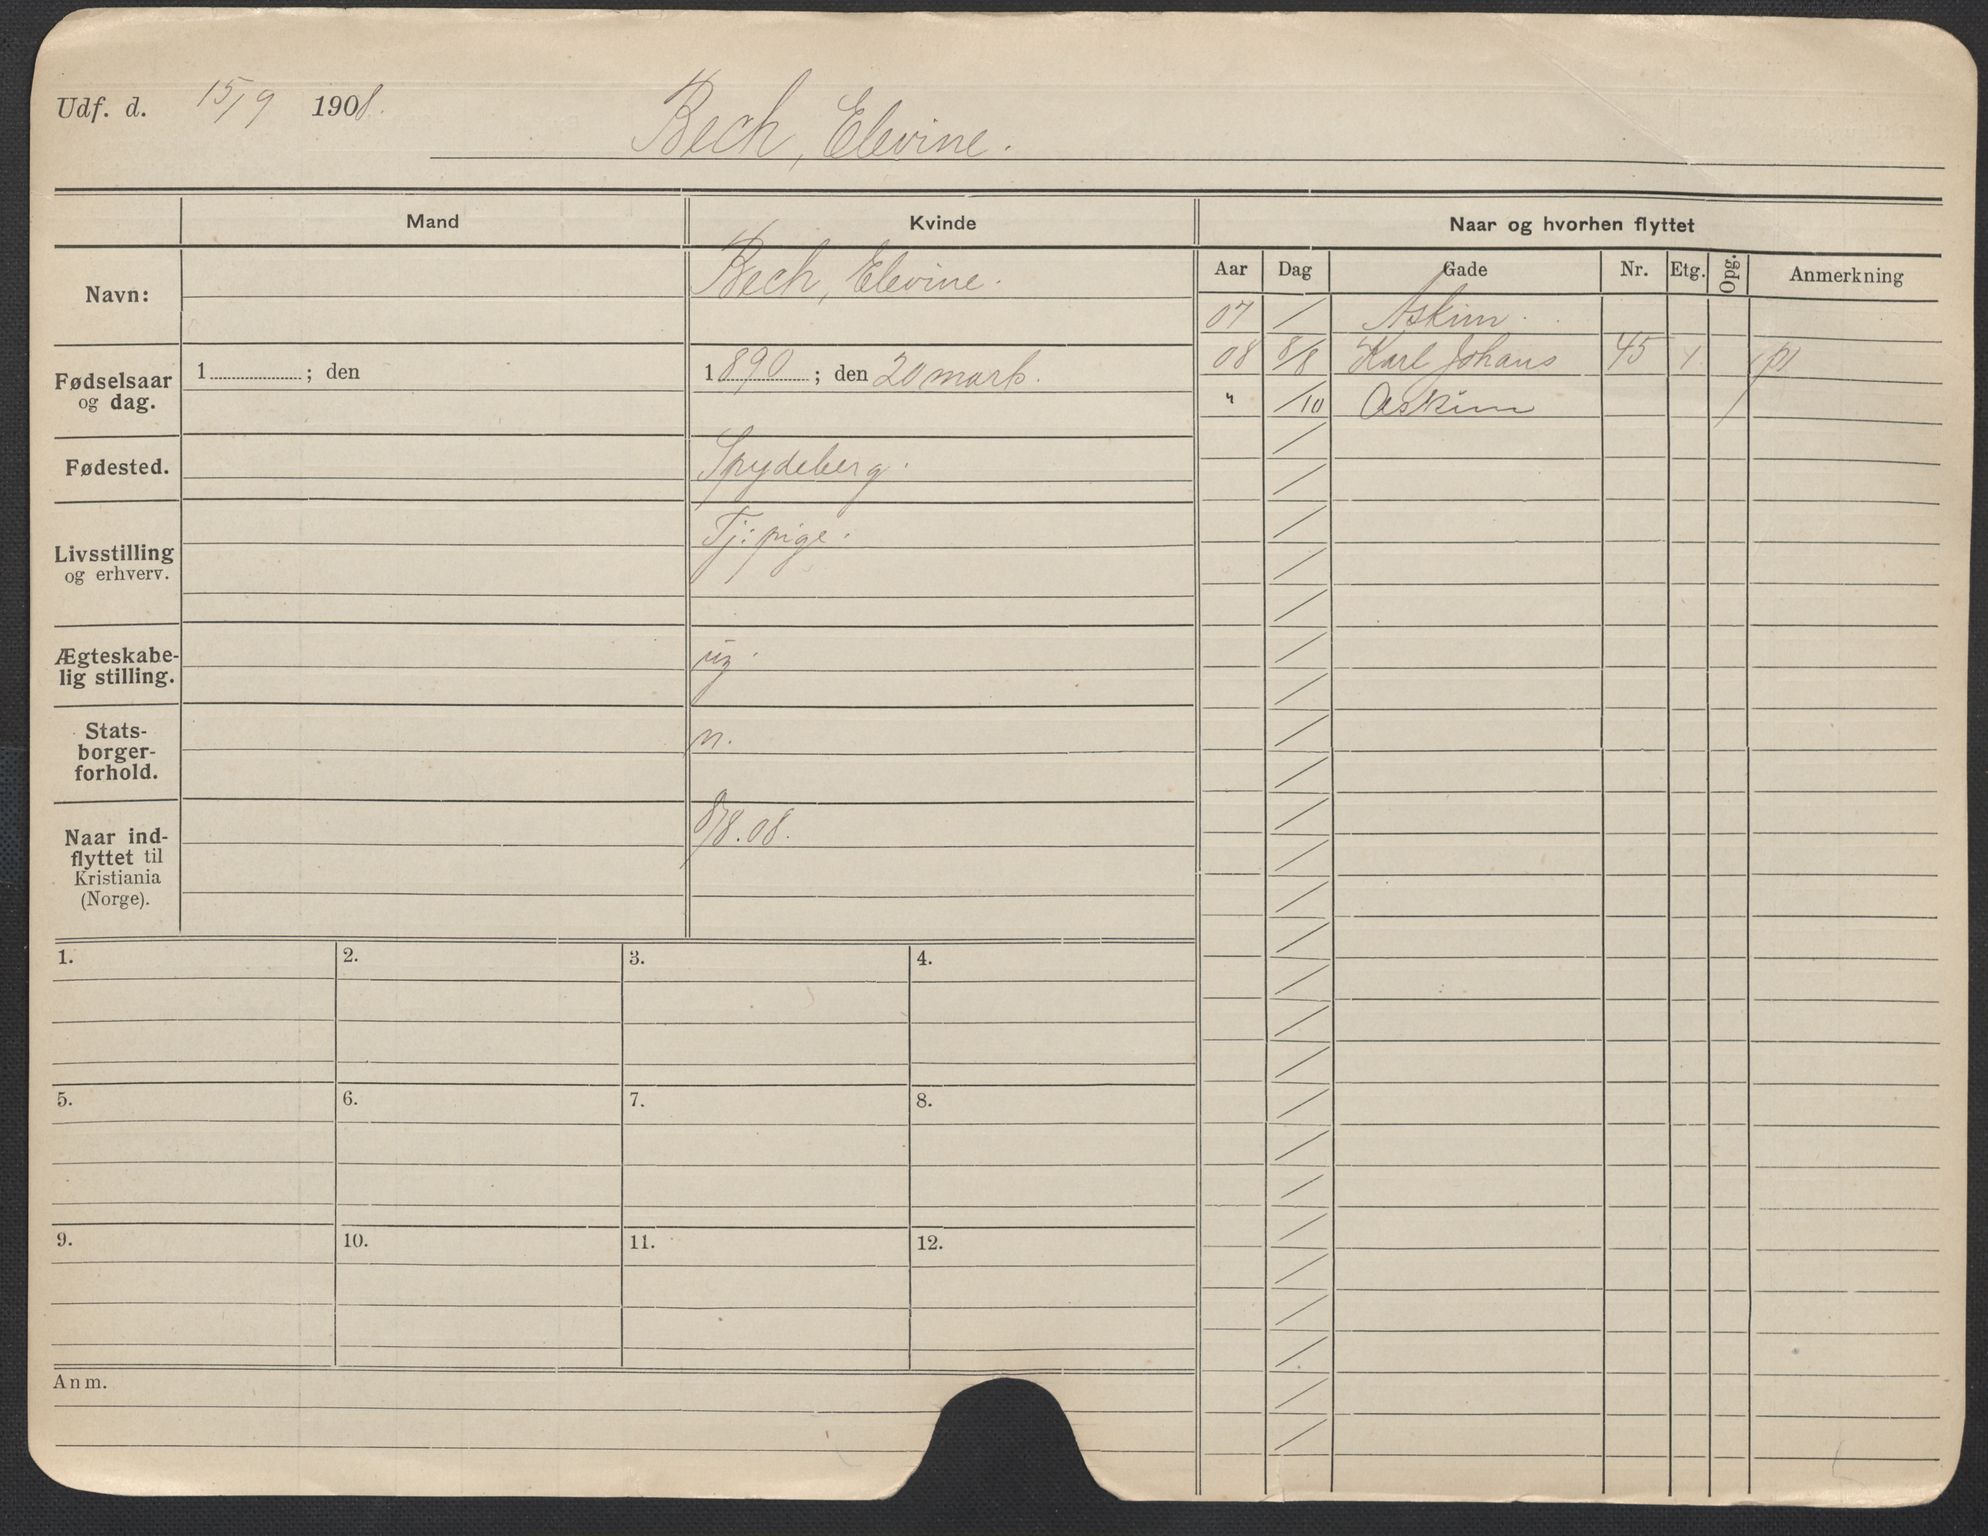 Udf. d. 15/9 1908.
Bech, Elevine.
Mand
Kvinde
Naar og hvorhen flyttet
Navn:
Bech, Elevine.
Aar Dag Gade Nr. Etg. Opg. Anmerkning
07 / Askim.
08 8/8 Karl Johans 45 1.
" /10 Askim
Fødselsaar
og dag.
1 ; den
1890 ; den 20 marts.
Fødested.
Spydeberg.
Livsstilling
og erhverv.
Tj: pige.
Ægteskabe-
lig stilling.
ug.
Stats-
borger-
forhold.
n.
Naar ind-
flyttet til
Kristiania
(Norge).
8/8.08.
1. 2. 3. 4.
5. 6. 7. 8.
9. 10. 11. 12.
Anm.